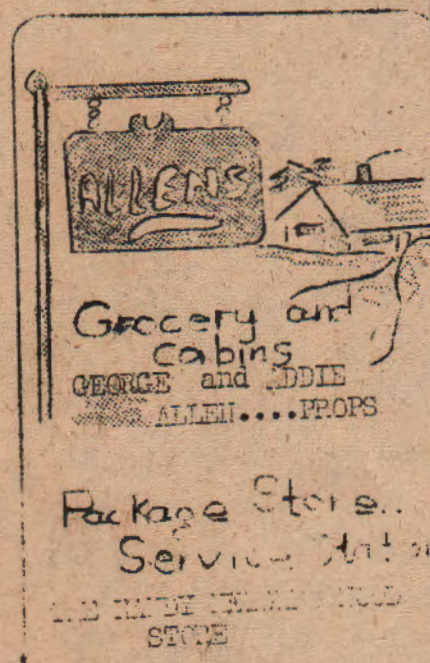 ALLENS
Grocery and
Cabins
GEORGE and ADDIE
ALLEN....PROPS
Package Store..
Service
STORE